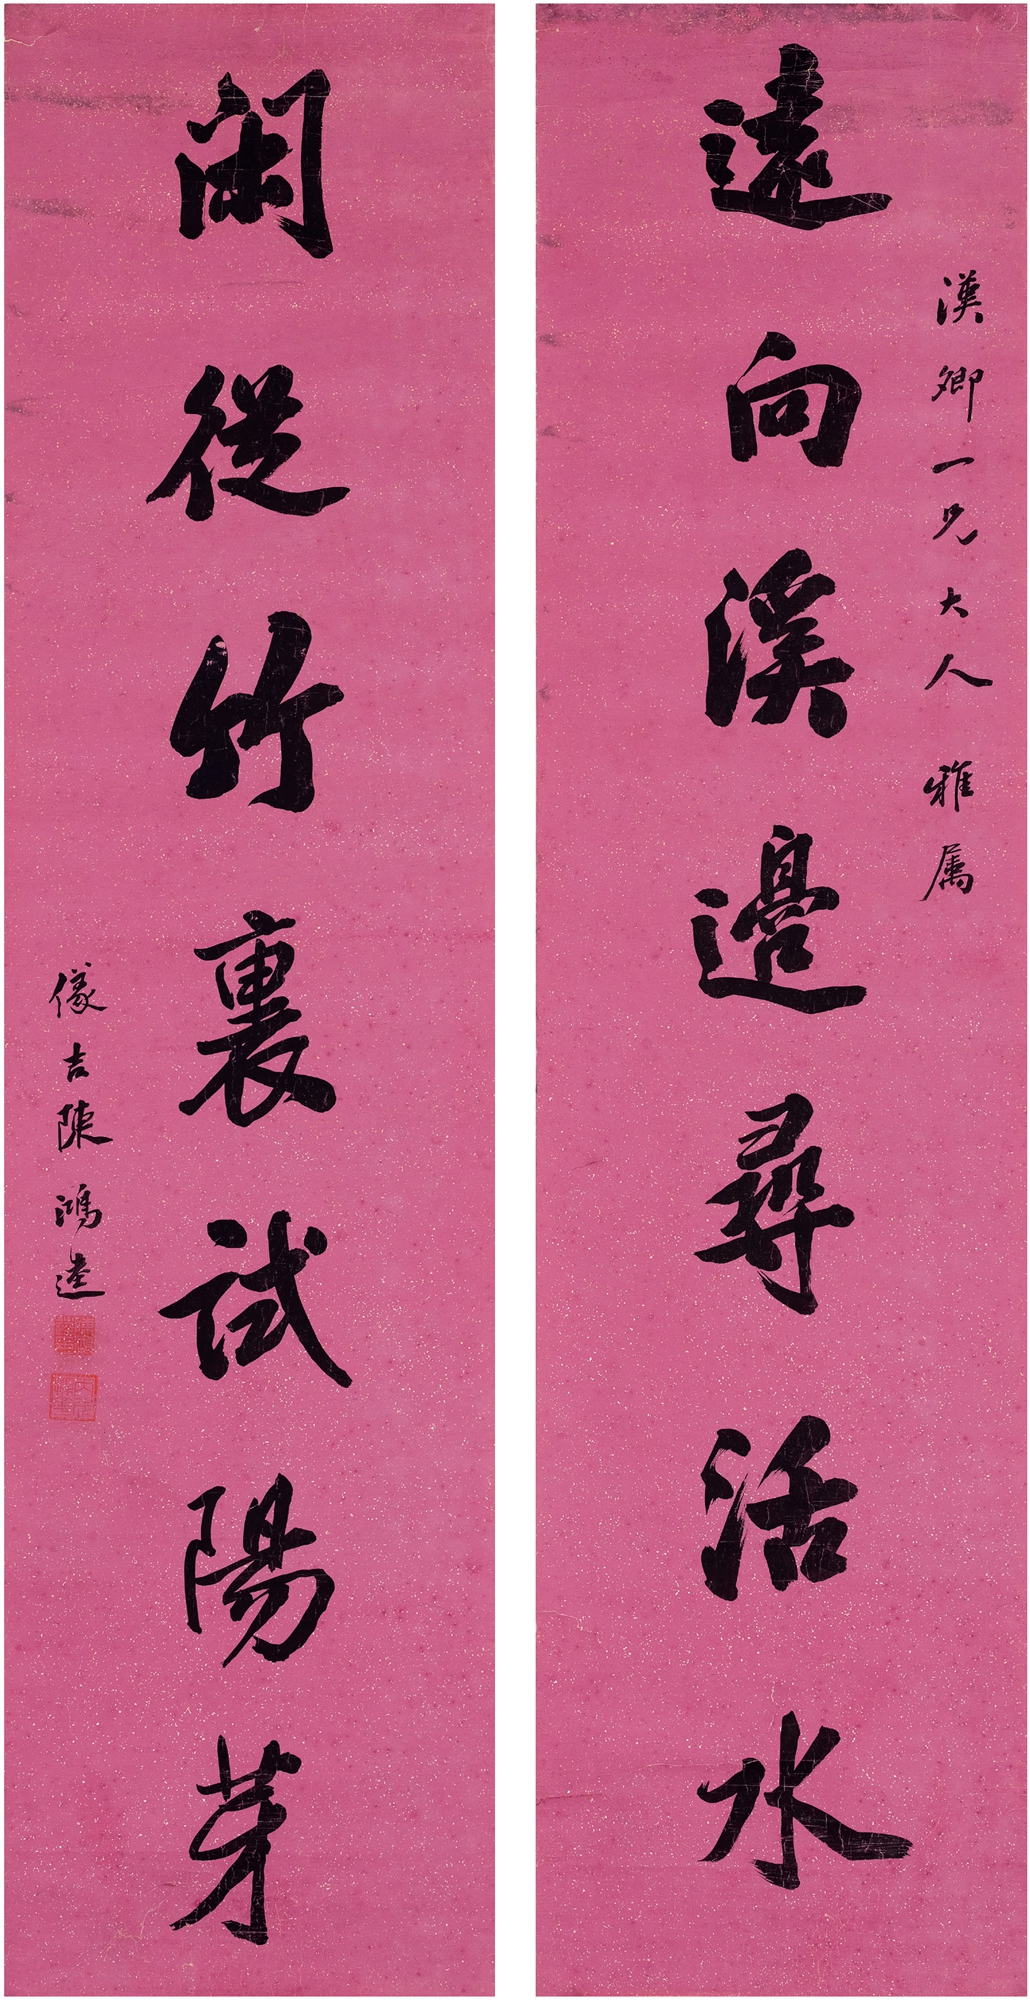 遠向溪邉尋活水
漢卿一兄大人雅属
閑從竹裏試陽芽
儀吉陳鴻逵